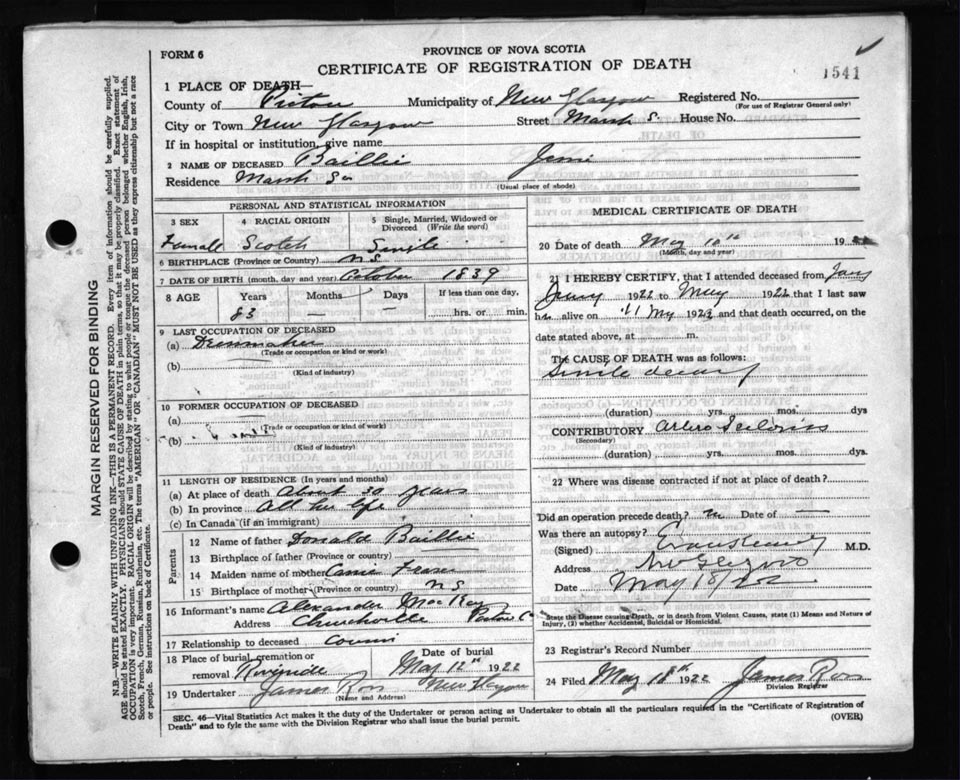 FORM 6
PROVINCE OF NOVA SCOTIA
CERTIFICATE OF REGISTRATION OF DEATH
1541
1 PLACE OF DEATH—
County of Pictou Municipality of New Glasgow Registered No.
(For use of Registrar General only)
City or Town New Glasgow Street Marsh S. House No.
If in hospital or institution, give name
2 NAME OF DECEASED Baillie Jessie
Residence Marsh St
(Usual place of abode)
PERSONAL AND STATISTICAL INFORMATION
3 SEX 4 RACIAL ORIGIN 5 Single, Married, Widowed or Divorced (Write the word)
Female Scotch Single
6 BIRTHPLACE (Province or Country) N.S.
7 DATE OF BIRTH (month, day and year) October 1839
8 AGE Years Months Days If less than one day,
83 — — hrs. or min.
9 LAST OCCUPATION OF DECEASED
(a) Dressmaker
(Trade or occupation or kind or work)
(b)
(Kind of industry)
10 FORMER OCCUPATION OF DECEASED
(a)
(Trade or occupation or kind of work)
(b)
(Kind of industry)
11 LENGTH OF RESIDENCE (In years and months)
(a) At place of death About 30 years
(b) In province All her life
(c) In Canada (if an immigrant)
Parents
12 Name of father Donald Baillie
13 Birthplace of father (Province or country)
14 Maiden name of mother Fraser
15 Birthplace of mother (Province or country) N S
16 Informant's name Alexander MacKay
Address Churchville Pictou Co
17 Relationship to deceased Cousin
18 Place of burial, cremation or removal Riverside Date of burial May 12th 1922
19 Undertaker James Ross New Glasgow
(Name and Address)
MEDICAL CERTIFICATE OF DEATH
20 Date of death May 10th 19
(Month, day and year)
21 I HEREBY CERTIFY, that I attended deceased from
1922 to May 1922 that I last saw
her alive on 11 May 192 and that death occurred, on the
date stated above, at m.
The CAUSE OF DEATH was as follows:
Senile decay
(duration) yrs. mos. dys
CONTRIBUTORY Arterio Sclerosis
(Secondary)
(duration) yrs. mos. dys.
22 Where was disease contracted if not at place of death?
Did an operation precede death? no Date of —
Was there an autopsy?
(Signed) M.D.
Address New Glasgow
Date May 18/22
State the Disease causing Death, or in death from Violent Causes, state (1) Means and Nature of
Injury, (2) whether Accidental, Suicidal or Homicidal.
23 Registrar's Record Number
24 Filed May 18th 1922 James Ross
Division Registrar
SEC. 46—Vital Statistics Act makes it the duty of the Undertaker or person acting as Undertaker to obtain all the particulars required in the "Certificate of Registration of
Death" and to fyle the same with the Division Registrar who shall issue the burial permit. (OVER)
MARGIN RESERVED FOR BINDING
N.B.—WRITE PLAINLY WITH UNFADING INK—THIS IS A PERMANENT RECORD. Every item of information should be carefully supplied.
AGE should be stated EXACTLY. PHYSICIANS should STATE CAUSE OF DEATH in plain terms, so that it may be properly classified. Exact statement of
OCCUPATION is very important. RACIAL ORIGIN will be described by stating to what people or tongue the deceased person belonged whether English, Irish,
Scotch, French, German, Russian, Ruthenian, etc. The terms "AMERICAN" OR "CANADIAN" MUST NOT BE USED as they express citizenship but not a race
or people. See instructions on back of Certificate.